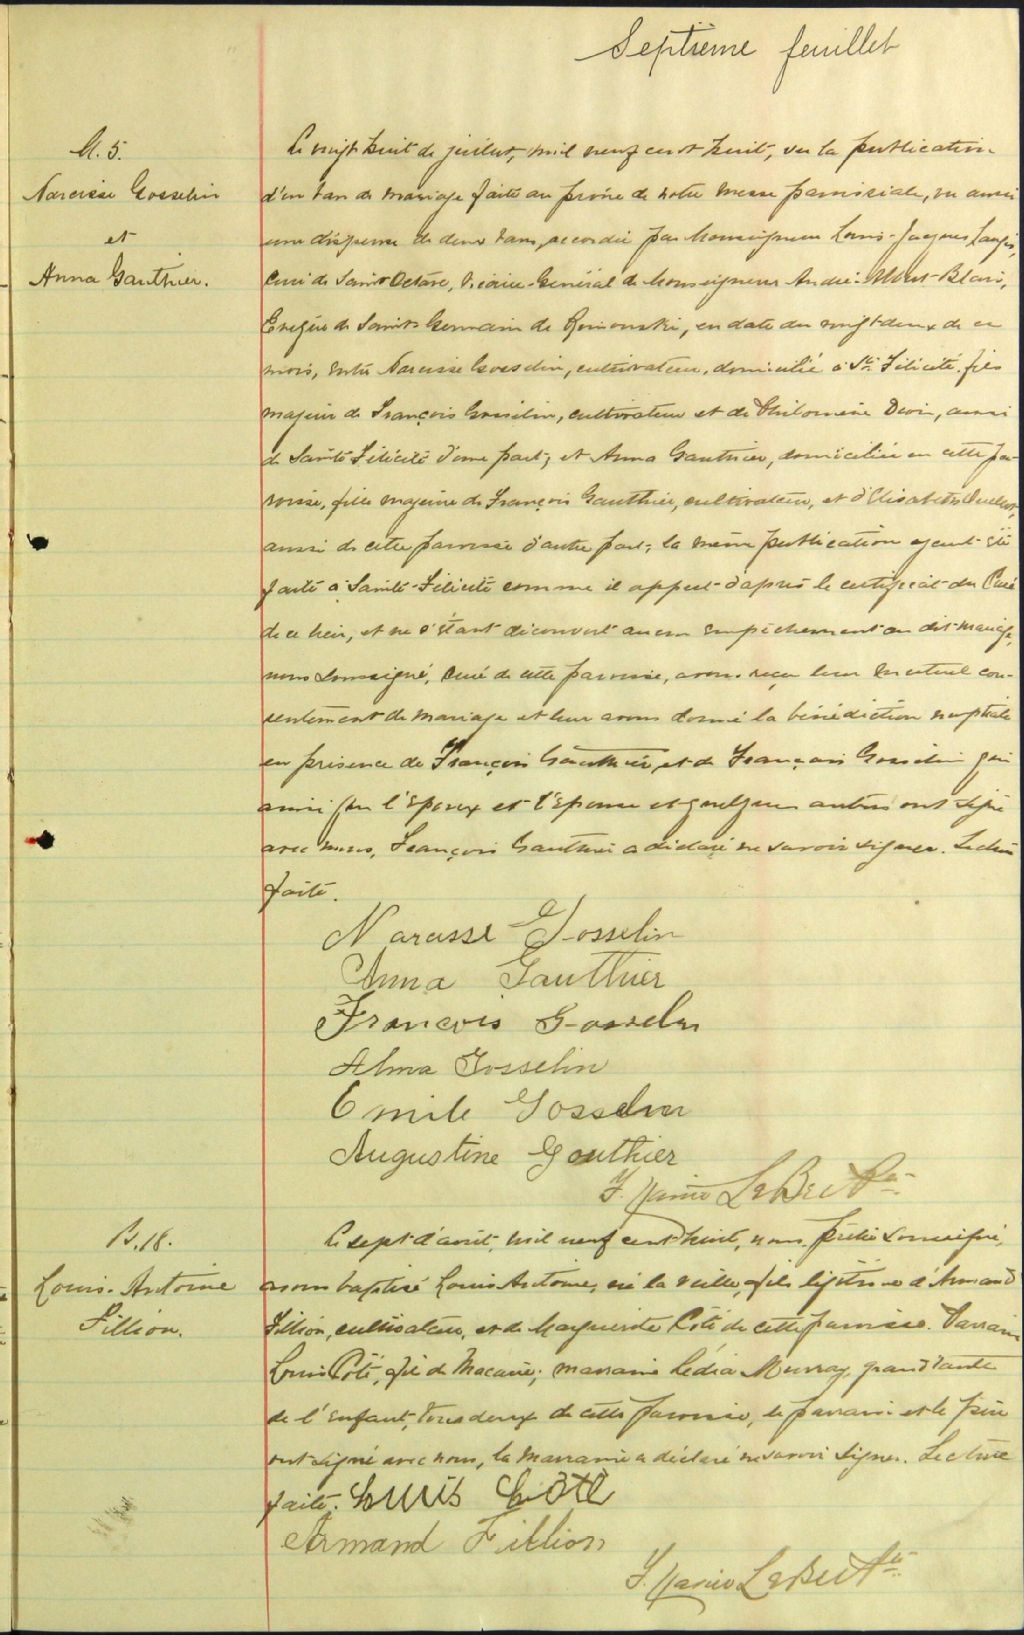 Septième feuillet
M. 5.
Narcisse Gosselin
et
Anna Gauthier.
Le vingt huit de juillet, mil neuf cent huit, vu la publication
d'un ban de mariage faite au prône de notre messe paroissiale, vu aussi
une dispense de deux bans, accordée par Monseigneur Louis-Jacques Langis,
Curé de Saint Octave, Vicaire-Général de Monseigneur André-Albert Blais,
Evêque de Saint Germain de Rimouski, en date du vingt-deux de ce
mois, entre Narcisse Gosselin, cultivateur, domicilié à Ste Félicité, fils
majeur de François Gosselin, cultivateur et de Philomène, aussi
de Sainte Félicité d'une part; et Anna Gauthier, domiciliée en cette pa-
roisse, fille majeure de François Gauthier, cultivateur, et d'Elisabeth
aussi de cette paroisse d'autre part; la même publication ayant été
faite à Sainte-Félicité comme il appert d'après le certificat du Curé
de ce lieu, et ne s'étant découvert aucun empêchement au dit mariage,
nous soussigné, curé de cette paroisse, avons reçu leur mutuel con-
sentement de mariage et leur avons donné la bénédiction nuptiale
en présence de François Gauthier, et de François Gosselin qui
ainsi que l'Epoux et l'Epouse et quelques autres ont signé
avec nous, François Gauthier a déclaré ne savoir signer. Lecture
faite.
Narcisse Gosselin
Anna Gauthier
François Gosselin
Alma Gosselin
Emile Gosselin
Augustine Gauthier
LeBel Ptre
B. 18.
Louis-Antoine
Fillion.
Le sept d'août, mil neuf cent huit, nous prêtre soussigné,
avons baptisé Louis Antoine, né la veille, fils légitime d'Armand
Fillion, cultivateur, et de Marguerite Côté de cette paroisse. Parrain
Louis Côté, fils de Macaire; marraine Lédia Murray, grand'tante
de l'enfant, tous deux de cette paroisse, le parrain et le père
ont signé avec nous, la marraine a déclaré ne savoir signer. Lecture
faite. Louis Côté
Armand Fillion
LeBel Ptre